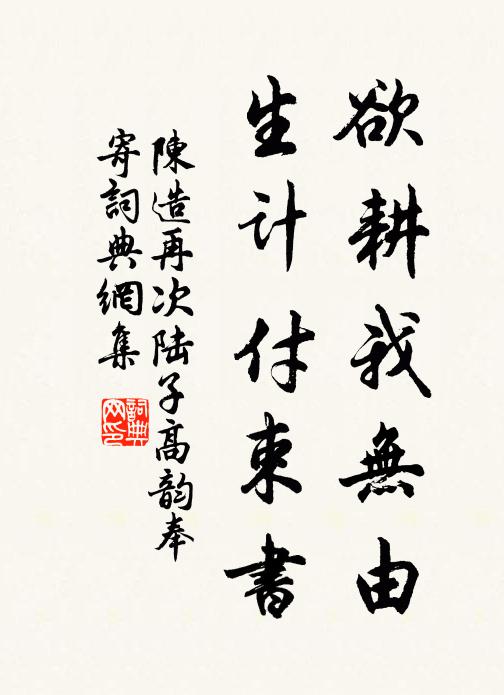 欲耕我無由
生计付束書
陳造再次陆子高韵奉
寄詞典網集
詞典
网印